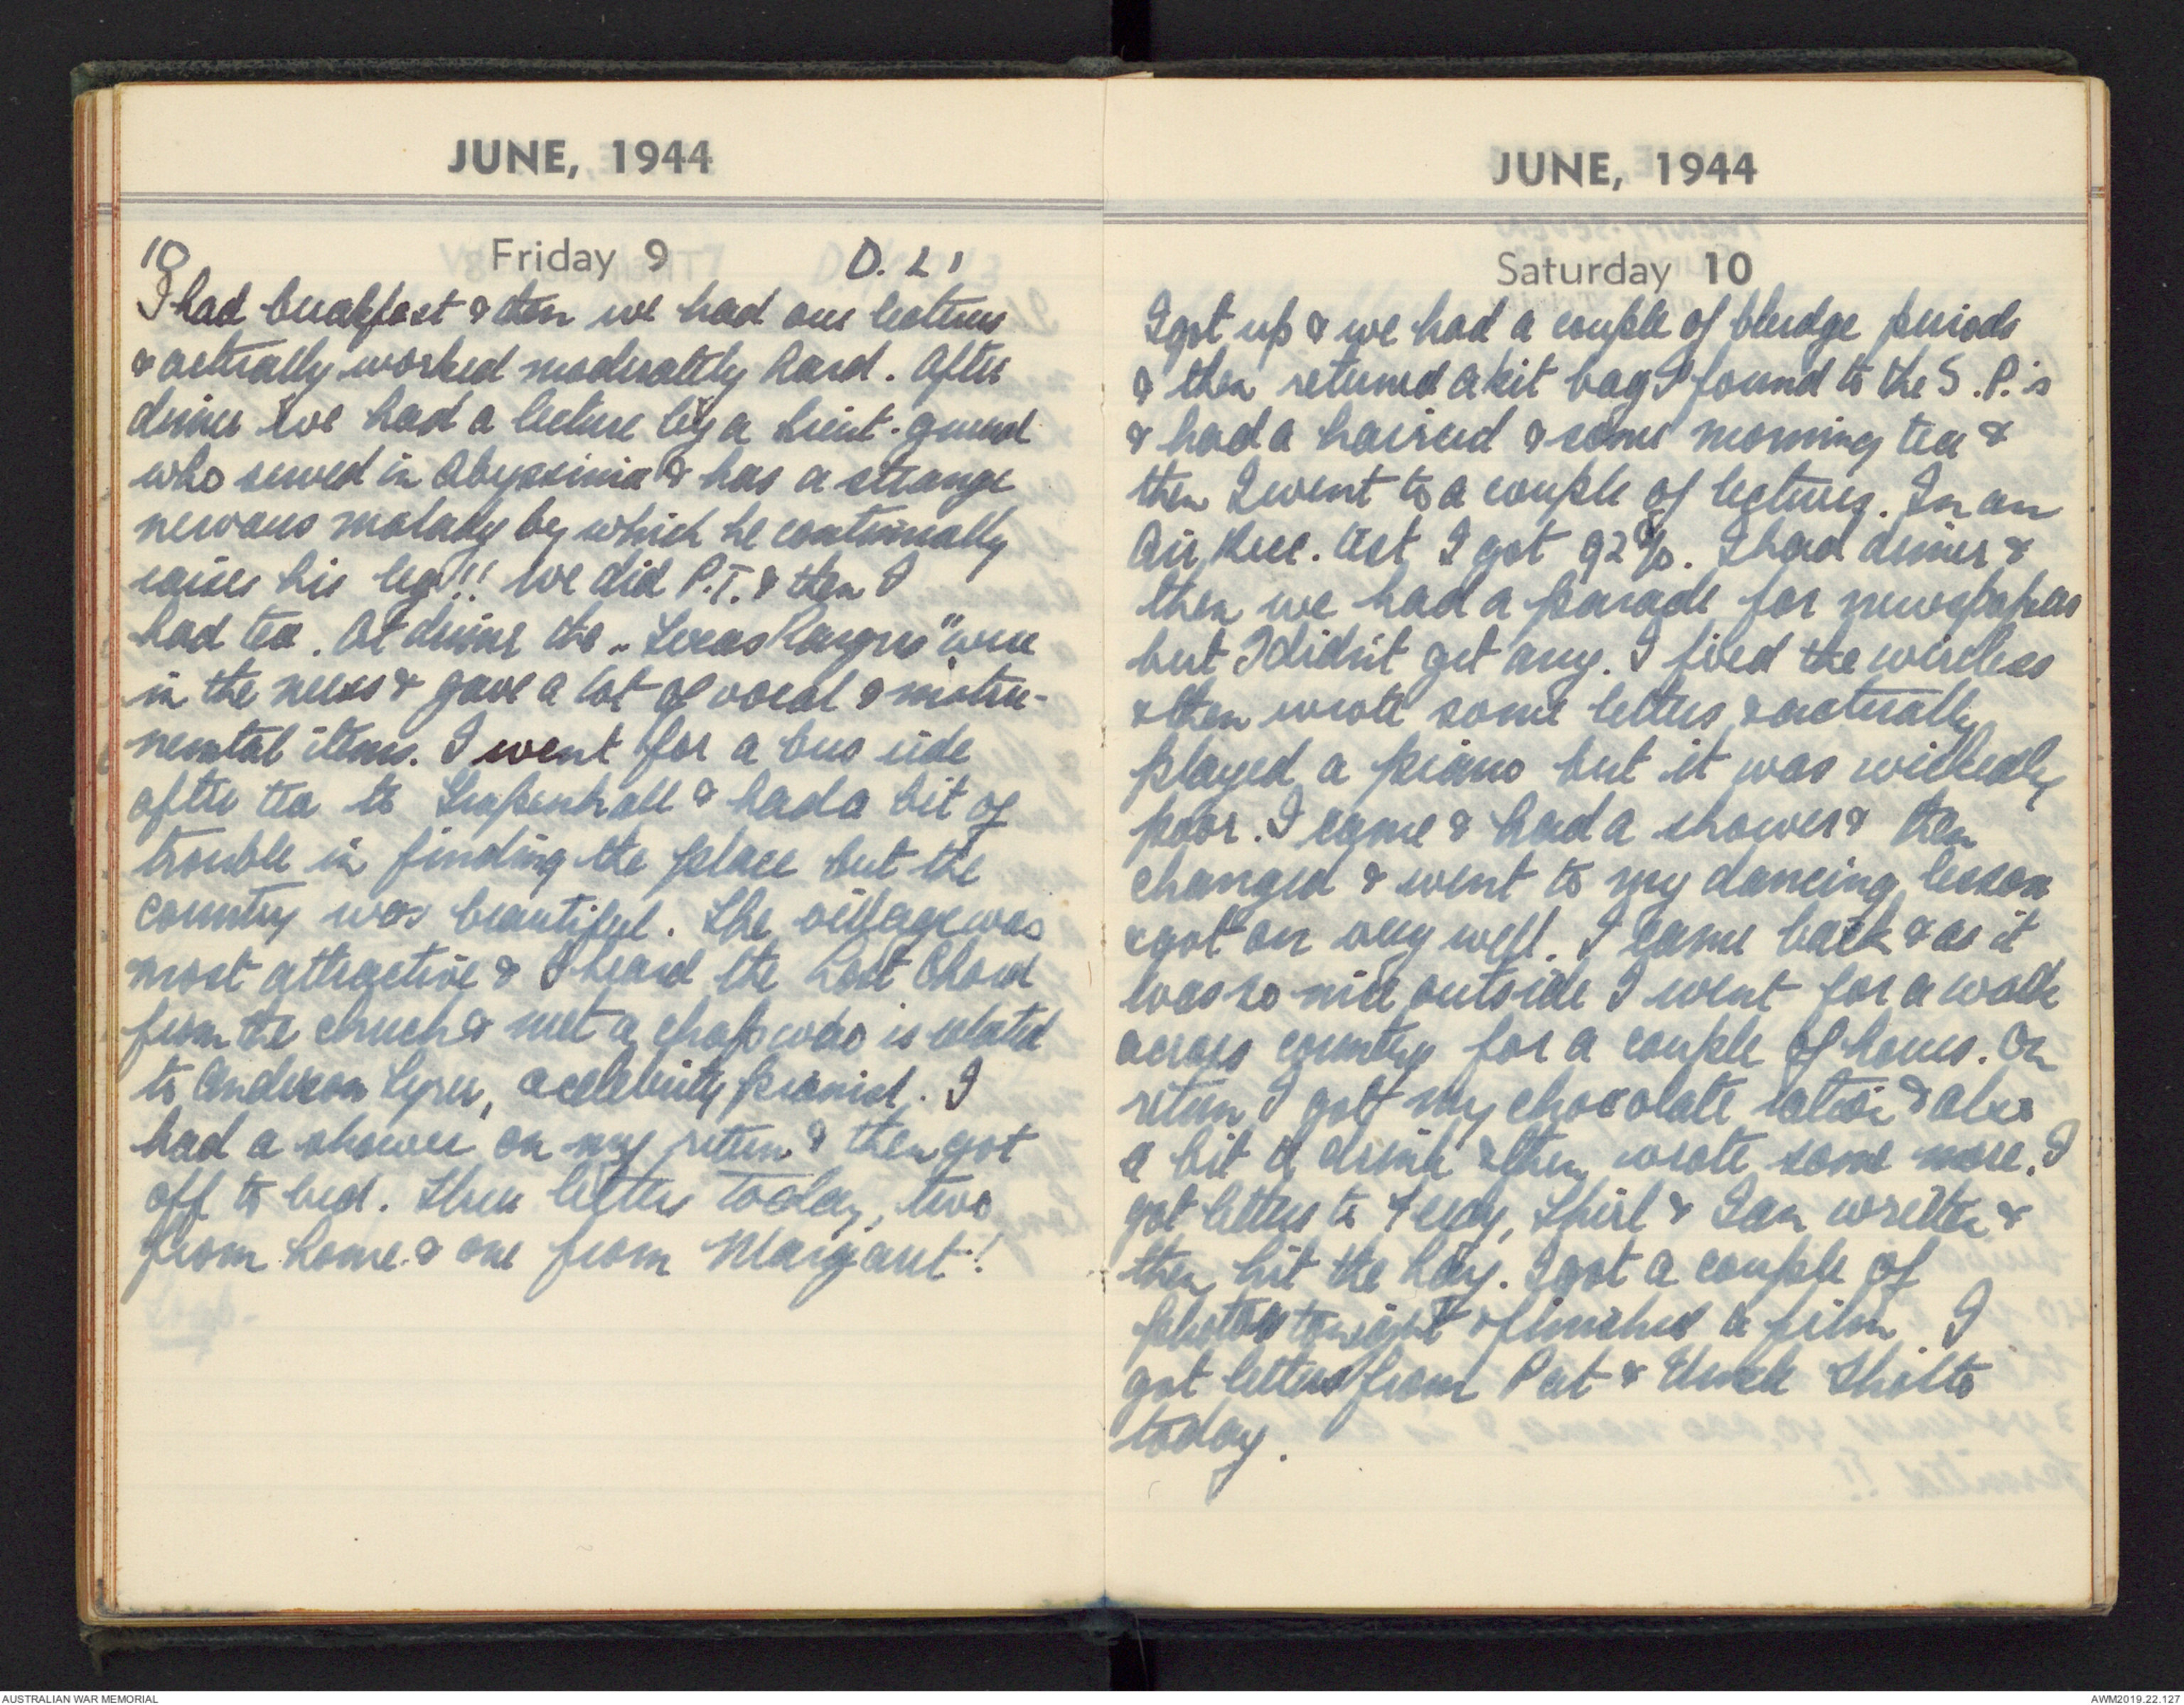 JUNE, 1944
10 Friday 9 D. 21
I had breakfast & then we had our lectures
& actually worked moderately hard. After
dinner we had a lecture by a Lieut-general
who served in Abyssinia & has a strange
nervous malady by which he continually
raises his leg!! We did P.T. & then I
had tea. At dinner the "Texas Rangers" were
in the mess & gave a lot of vocal & instru-
mental items. I went for a bus ride
after tea to & had a bit of
trouble in finding the place but the
country was beautiful. The village was
most attractive & I heard the Lost Chord
from the church & met a chap who is related
to Anderson Tyrer, a celebrity pianist. I
had a shower on my return & then got
off to bed. Three letters today, two
from home & one from Margaret!
JUNE, 1944
Saturday 10
I got up & we had a couple of bludge periods
& then returned a kit bag I found to the S.P.'s
& had a haircut & some morning tea &
then I went to a couple of lectures. In an
Air Rec. test I got 92%. I had dinner &
then we had a parade for newspapers
but I didn't get any. I fixed the wireless
& then wrote some letters & actually
played a piano but it was wickedly
poor. I came & had a shower & then
changed & went to my dancing lesson
& got on very well. I came back & as it
was so nice outside I went for a walk
across country for a couple of hours. On
return I got my chocolate ration & also
a bit of drink & then wrote some more. I
got letters to , Shirl & Ian written &
then hit the hay. I got a couple of
photos tonight & finished a film. I
got letters from Pat & Uncle
today.
AUSTRALIAN WAR MEMORIAL
AWM2019.22.127